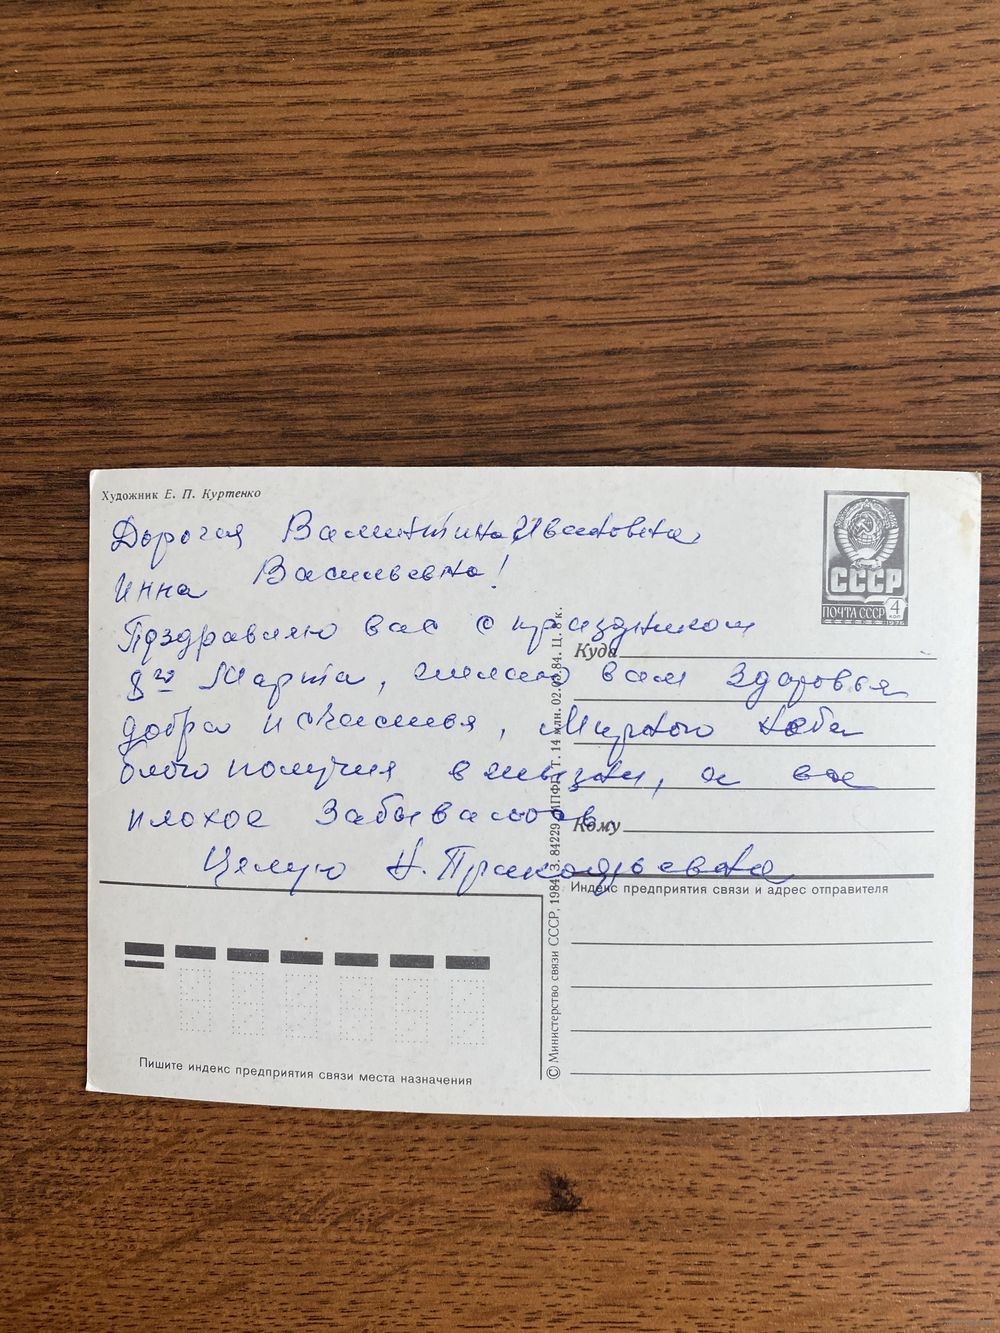 Художник Е. П. Куртенко
Дорогая Валентина Ивановна,
Инна Васильевна!
Пдздравляю вас с праздником
8го Марта, желаю вам здоровья
добра и счастья, Мирного неба
благополучия в жизни, а все
плохое Забывалось
Целую Н. Пракофьевна
СССР
ПОЧТА СССР
4
КОП
1976
Куда
Кому
Индекс предприятия связи и адрес отправителя
© Министерство связи СССР, 1984. З. 84229. МПФГ. Т. 14 млн. 02.03.84. Ц. 5 к.
Пишите индекс предприятия связи места назначения